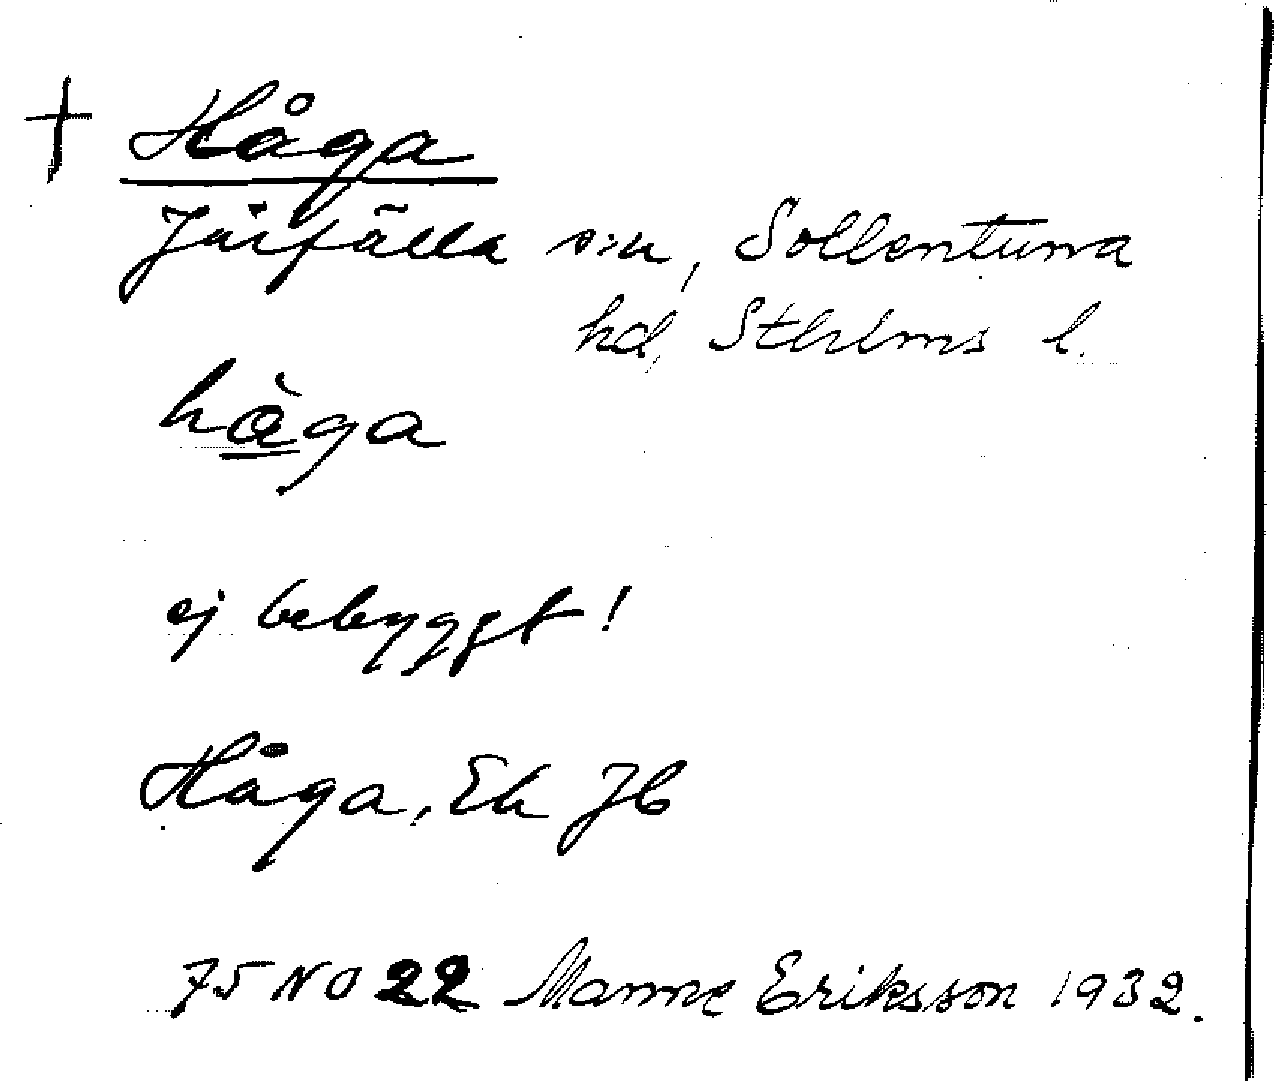 † Håga
Järfälla sn, Sollentuna
hd, Sthlms l.
hå̀ga
ej bebyggt!
Håga, Ek JB
75 NO 22 Manne Eriksson 1932.